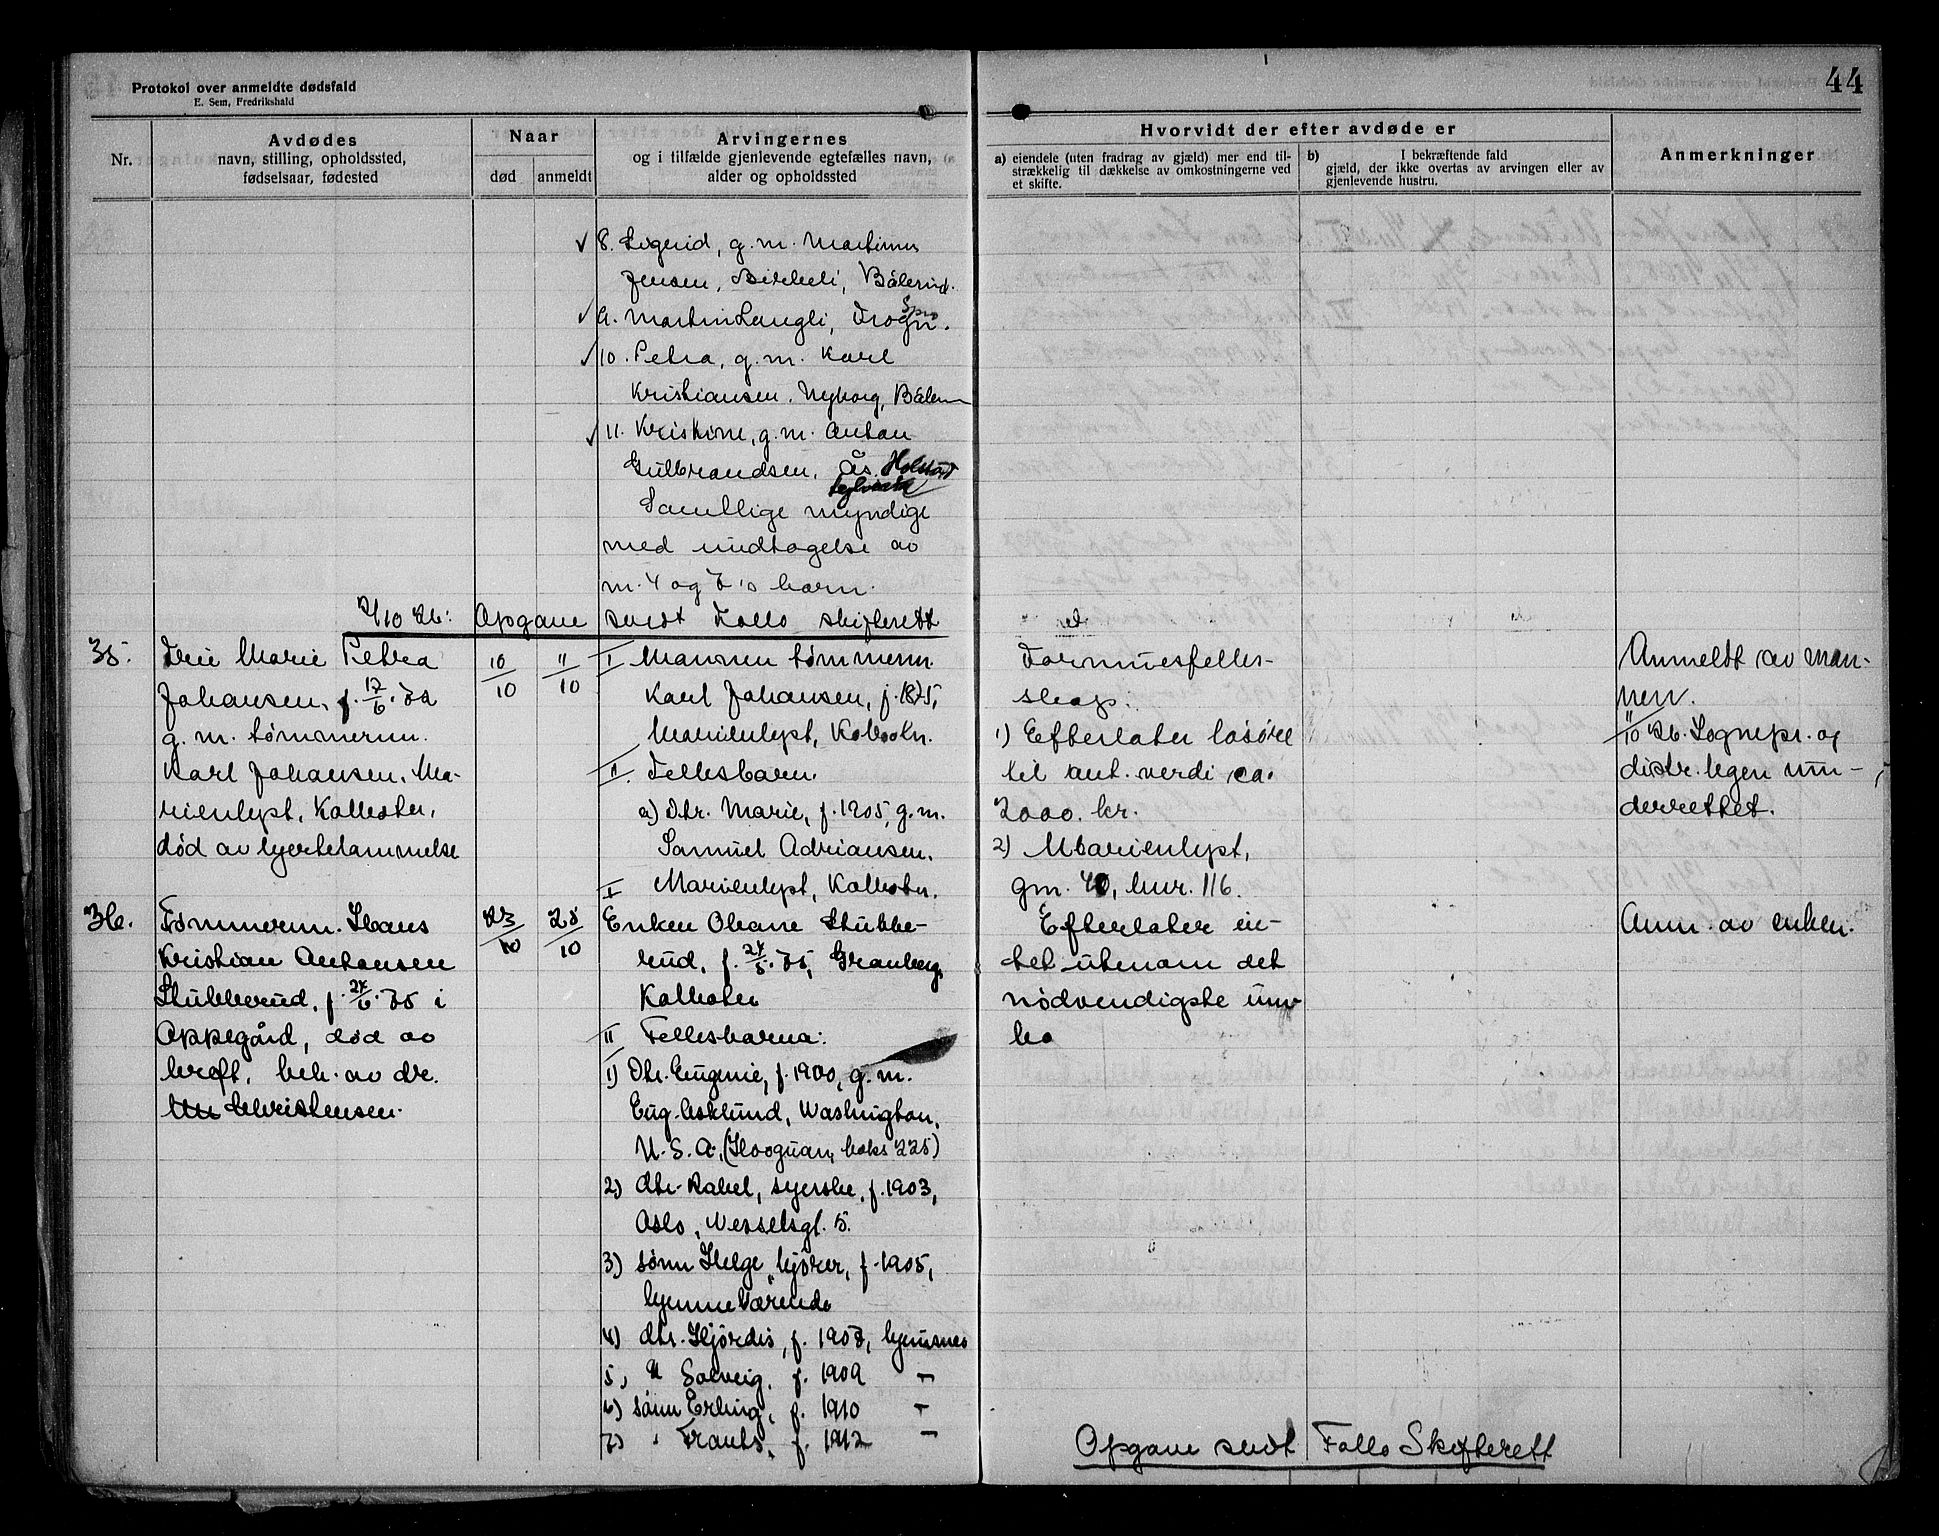 44
Protokol over anmeldte dødsfald
E. Sem, Fredrikshald
Nr.
Avdødes
navn, stilling, opholdssted,
fødselsaar, fødested
Naar
død
anmeldt
Arvingernes
og i tilfælde gjenlevende egtefælles navn,
alder og opholdssted
Hvorvidt der efter avdøde er
a) eiendele (uten fradrag av gjæld) mer end til-
strækkelig til dækkelse av omkostningerne ved
et skifte.
b) I bekræftende fald
gjæld, der ikke overtas av arvingen eller av
gjenlevende hustru.
Anmerkninger
8. g. m. Martinus
Jensen, Birkeli, Bålerud.
9. Martin Langli, Drøgn.
10. Petra, g. m. Karl
Kristiansen, Nyborg, Bålerud
11. Kristine, g. m. Anton
Gulbrandsen, Ås. Holstad
Samtlige myndige
med undtagelse av
nr. 4 og 7's barn.
2/10 26: Opgave sendt Follo skifterett
35.
Fru Marie Petra
Johansen, f. 17/6. 72
g. m. tømmerm.
Karl Johansen, Ma-
rienlyst, Kolbotn,
død av hjertelammelse
10/10
11/10
I Mannen tømmerm.
Karl Johansen, f. 1875,
Marienlyst, Kolbotn.
II Fellesbarn.
a) Dtr. Marie, f. 1905, g. m.
Samuel Adriansen,
Marienlyst, Kolbotn.
Formuesfelles-
skap.
1) Efterlater løsøre
til ant. verdi ca.
2000. kr.
2) Marienlyst,
gnr. 40, bnr. 116.
Anmeldt av man-
nen.
11/10 26. Sognepr. og
distr. legen un-
derrettet.
36.
Tømmerm. Hans
Kristian Antonsen
Stubberud, f. 24/6. 75 i
Oppegård, død av
kreft, beh. av dr.
Christensen.
23/10
25/10
I Enken Oleane Stubbe-
rud, f. 24/5. 75, Granberg,
Kolbotn
II Fellesbarna:
1) Dtr. Eugenie, f. 1900, g. m.
Eug. Asklund, Washington,
U. S. A. (Hoquam, boks 225)
2) dtr. Rakel, syerske, f. 1903,
Oslo, Wesselsgt. 15.
3) sønn Helge, kjører, f. 1905,
hjemmeværende
4) dtr. Hjørdis, f. 1907, hjemmev
5) " Solveig, f. 1909 -
6) sønn Erling, f. 1910 -
7) " Frants, f. 1912 -
Efterlater in-
tet utenom det
nødvendigste inn-
bo
Anm. av enken.
Opgave sendt Follo Skifterett